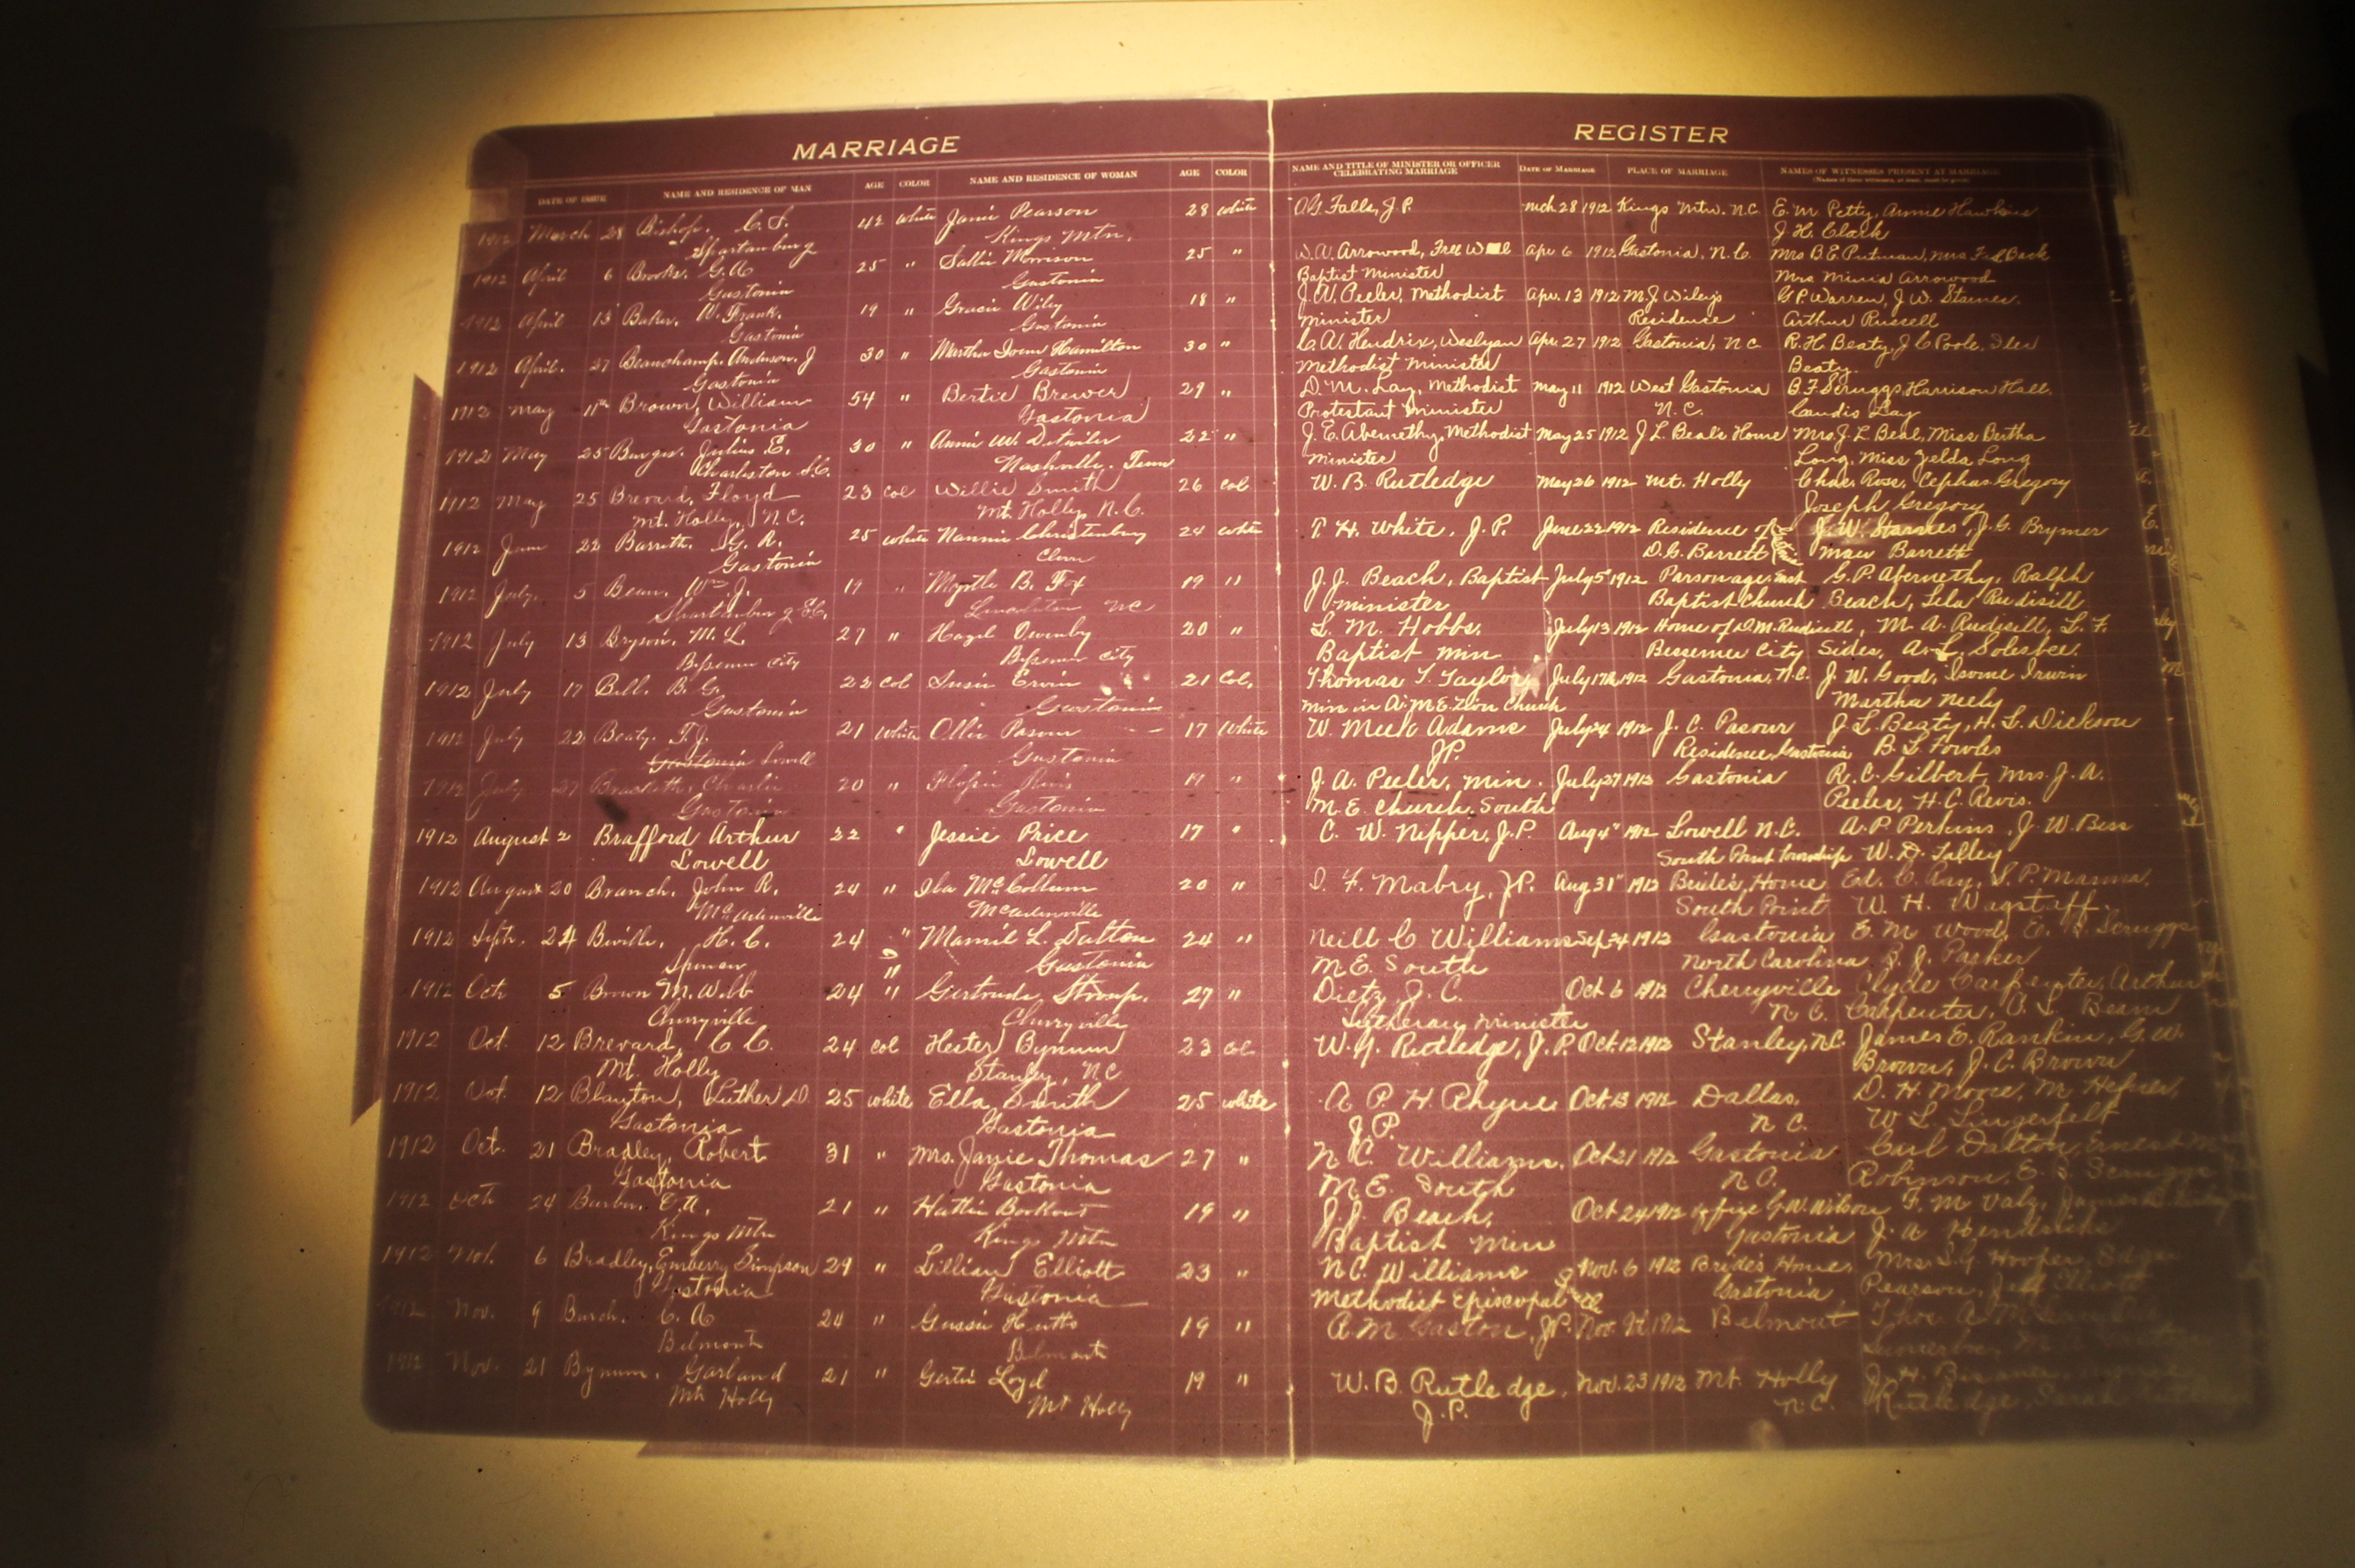 MARRIAGE REGISTER
DATE OF ISSUE NAME AND RESIDENCE OF MAN AGE COLOR NAME AND RESIDENCE OF WOMAN AGE COLOR NAME AND TITLE OF MINISTER OR OFFICER CELEBRATING MARRIAGE DATE OF MARRIAGE PLACE OF MARRIAGE NAMES OF WITNESSES PRESENT AT MARRIAGE
1912 March 28 Bishop, C. S. 42 white Janie Pearson 28 white A.G. Falls, J.P. Mch 28 1912 Kings Mtn. N.C. E. M. Petty, Annie Hawkins
Spartanburg Kings Mtn. J. H. Clark
1912 April 6 Brooks, G. A 25 " Sallie Morrison 25 " W. W. Arrowood, Free Apr 6 1912 Gastonia, N. C. Mrs B. E. Putman, Mrs
Gastonia Gastonia Baptist Minister Mrs Minnia Arrowood
1912 April 13 Baker, W. Frank. 19 " Gracie Wiley 18 " J. A. Peeler, Methodist Apr. 13 1912 M. J Wiley's G. P. Warren, J. W. Starnes.
Gastonia Gastonia Minister Residence Arthur Russell
1912 April. 27 Beauchamp, Anderson. J 30 " Martha Hamilton 30 " C. A. Hendrix, Weslyan Apr 27 1912 Gastonia, N C R. H. Beaty, J C Poole,
Gastonia Gastonia Methodist Minister Beaty.
1912 May 11th Brown, William 54 " Bertie Brewer 29 " D. M. Lay, Methodist May 11 1912 West Gastonia B. F. Scruggs, Harrison Hall,
Gastonia Gastonia Protestant Minister N. C. Candis Lay
1912 May 25 Burger, Julius E. 30 " Annie W. Detwiler 22 " J. E. Abernethy, Methodist May 25 1912 J L. Beal's Home Mrs. J. L Beal, Miss Bertha
Charleston S.C. Nashville. Tenn Minister Long, Miss Zelda Long
1912 May 25 Brevard, Floyd 23 col Willie Smith 26 col W. B. Rutledge May 26 1912 Mt. Holly Chas. Rose, Cephas Gregory
Mt. Holly, N.C. Mt. Holly, N.C. Joseph Gregory
1912 June 22 Barrett. G. R. 25 white Nannie Christenbury 24 white T. H. White, J.P. June 22 1912 Residence of J. W. Starnes, J. G. Brymer
Gastonia D. C. Barrett Barrett
1912 July. 5 Bean. Wm J. 19 " Myrtle B. Fox 19 " J. J. Beach, Baptist July 5 1912 Parsonage East G. P. Abernethy, Ralph
Lincolnton NC minister Baptist Church Beach, Lela Rudisill
1912 July 13 Bryson, M. L. 27 " Hazel Ownby 20 " L. M. Hobbs, July 13 1912 Home of D.M. Rudisill, M. A. Rudisill, L. F.
Bessemer City Bessemer City Baptist Min Bessemer City Sides, A. L. Solesbee.
1912 July 17 Bell. B. G. 22 col Susie Ervin 21 Col. Thomas T. Taylor July 17th 1912 Gastonia, N.C. J. W. Good, Isome Irwin
Gastonia Gastonia min in A. M E. Zion Church Martha Neely
1912 July 22 Beaty. F. J. 21 white Ollie Pasour 17 white W. Meek Adams July 24 1912 J. C. Pasour J L. Beaty, H. L. Dickson
Gastonia Lowell Gastonia J.P. Residence, Gastonia B. L. Fowles
1912 July 27 Charlie 20 " 19 " J. A. Peeler, Min. July 27 1912 Gastonia R. C. Gilbert, Mrs. J. A.
Gastonia Gastonia M. E. Church, South Peeler, H. C. Revis.
1912 August 2 Brafford Arthur 22 " Jessie Price 17 " C. W. Nipper, J.P. Aug 4" 1912 Lowell N.C. A. P. Perkins, J. W. Bess
Lowell Lowell South Point Township W. D. Lalley
1912 August 20 Branch. John R. 24 " Ila McCollum 20 " F. Mabry, J.P. Aug 31" 1912 Bride's Home Ed. C. Ray,
McAdenville McAdenville South Point W. H. Wagstaff.
1912 Sept. 24 Biville, H. C. 24 " Mamie L. Dalton 24 " Neill C Williams Sep. 24 1912 Gastonia E. M Wood, E. Scruggs
Spencer Gastonia M. E. South North Carolina B. J. Parker
1912 Oct 5 Brown M. Webb 24 " Gertrude Stroup. 27 " Dietz, J. C. Oct 6 1912 Cherryville Clyde Carpenter, Arthur
Cherryville Cherryville Lutheran Minister N. C. Carpenter, Beam
1912 Oct. 12 Brevard, C C. 24 col Hester Bynum 23 col Rutledge, J. P. Oct. 12 1912 Stanley, N.C. James E. Rankin, G. W.
Mt. Holly Stanley, NC Brown, J. C. Brown
1912 Oct. 12 Blanton, Luther D. 25 white Ella Smith 25 white A. P. H. Rhyne Oct. 13 1912 Dallas, D. H. Moore, M. Hefner,
Gastonia Gastonia J. P. N C. W L. Lingerfelt
1912 Oct. 21 Bradley, Robert 31 " Mrs. Janie Thomas 27 " N. C. Williams, Oct 21 1912 Gastonia Carl Dalton, Ernest M
Gastonia Gastonia M. E. South N. C. Robinson, E. Scruggs
1912 Oct 24 21 " Hattie Bookout 19 " J. J. Beach, Oct 24 1912 office G. W. Wilson F. M
Kings Mtn Kings Mtn Baptist Min Gastonia J. A Hendricks
1912 Nov. 6 Bradley, Emberry Simpson 29 " Lillian Elliott 23 " N. C. Williams Nov. 6 1912 Bride's Home, Mrs. Hooper,
Gastonia Gastonia Methodist Episcopal Gastonia, Pearson,
1912 Nov. 9 Burch. C. A 24 " Gussie Hutto 19 " A. M Gaston, J.P. Nov. 1912 Belmont Thos. A.
Belmont Belmont
1912 Nov. 21 Bynum, Garland 21 " Gertie Loyd 19 " W. B. Rutledge, Nov. 23 1912 Mt. Holly J. H.
Mt Holly Mt Holly J. P. N. C. Rutledge,